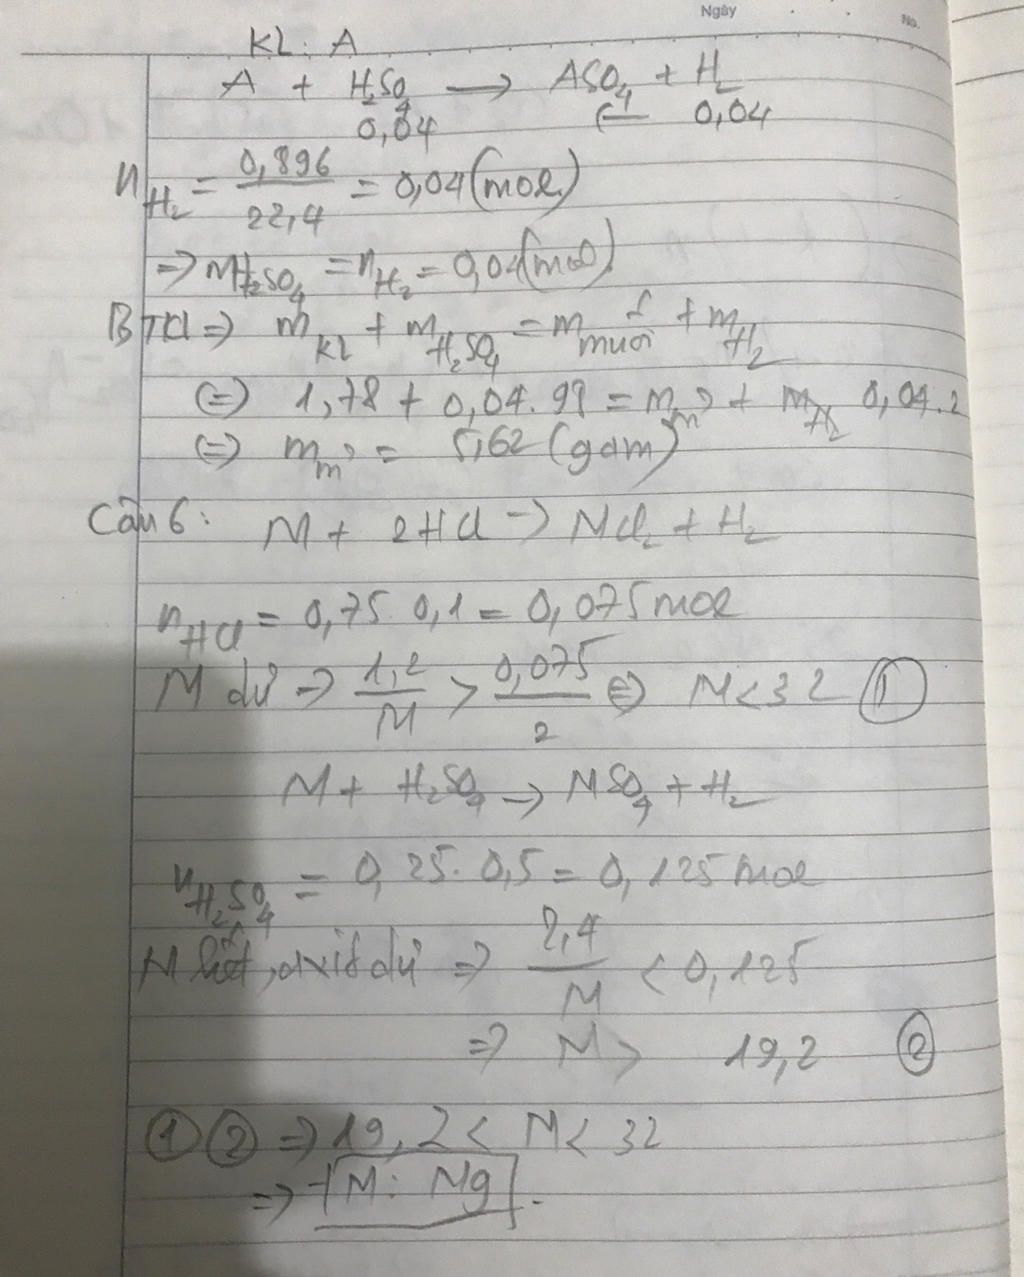 Ngày
No.
KL: A
A + H₂SO₄ → ASO₄ + H₂
0,04 ← 0,04
n_H₂ = 0,896/22,4 = 0,04 (mol)
=> n_H₂SO₄ = n_H₂ = 0,04 (mol)
BTKL => m_KL + m_H₂SO₄ = m_muối + m_H₂
(=) 1,78 + 0,04.98 = m_m' + m_H₂ 0,04.2
(=) m_m' = 5,62 (gam)
Câu 6: M + 2HCl → MCl₂ + H₂
n_HCl = 0,75.0,1 = 0,075 mol
M dư => 1,2/M > 0,075/2 (=) M < 32 ①
M + H₂SO₄ → MSO₄ + H₂
n_H₂SO₄ = 0,25.0,5 = 0,125 mol
M hết, axit dư => 2,4/M < 0,125
=> M > 19,2 ②
① ② => 19,2 < M < 32
=> M: Mg.